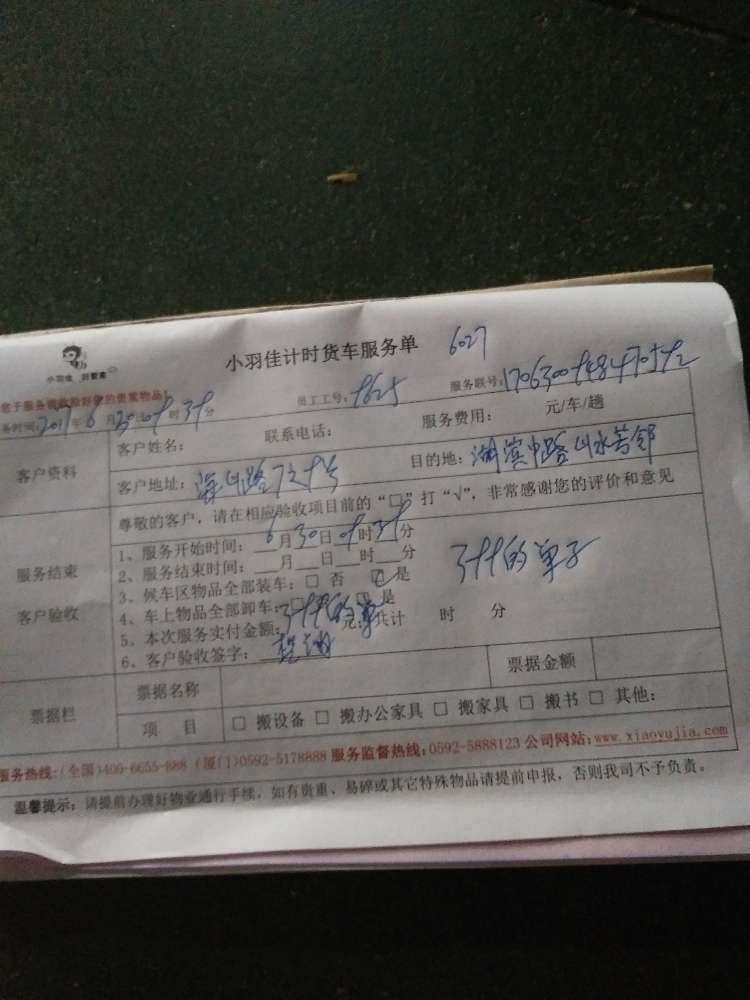 小羽佳计时货车服务单 6027
小羽佳 好管家
员工工号：
服务联号：
务时间：2017年6月30日 时 分
客户资料
客户姓名：
联系电话：
服务费用： 元/车/趟
客户地址：
目的地：湖滨中路山水芳邻
尊敬的客户，请在相应验收项目前的“□”打“√”，非常感谢您的评价和意见
服务结束
客户验收
1、服务开始时间：6月30日 时 分
2、服务结束时间：__月__日__时__分
3、候车区物品全部装车：□ 否 ☑ 是
4、车上物品全部卸车： 是
的单子
5、本次服务实付金额： 元；共计 时 分
6、客户验收签字：
票据栏
票据名称
票据金额
项 目
□ 搬设备 □ 搬办公家具 □ 搬家具 □ 搬书 □ 其他：
服务热线：(全国)400-6655-888 (厦门)0592-5178888 服务监督热线：0592-5888123 公司网站：www.xiaoyujia.com
温馨提示：请提前办理好物业通行手续，如有贵重、易碎或其它特殊物品请提前申报，否则我司不予负责。